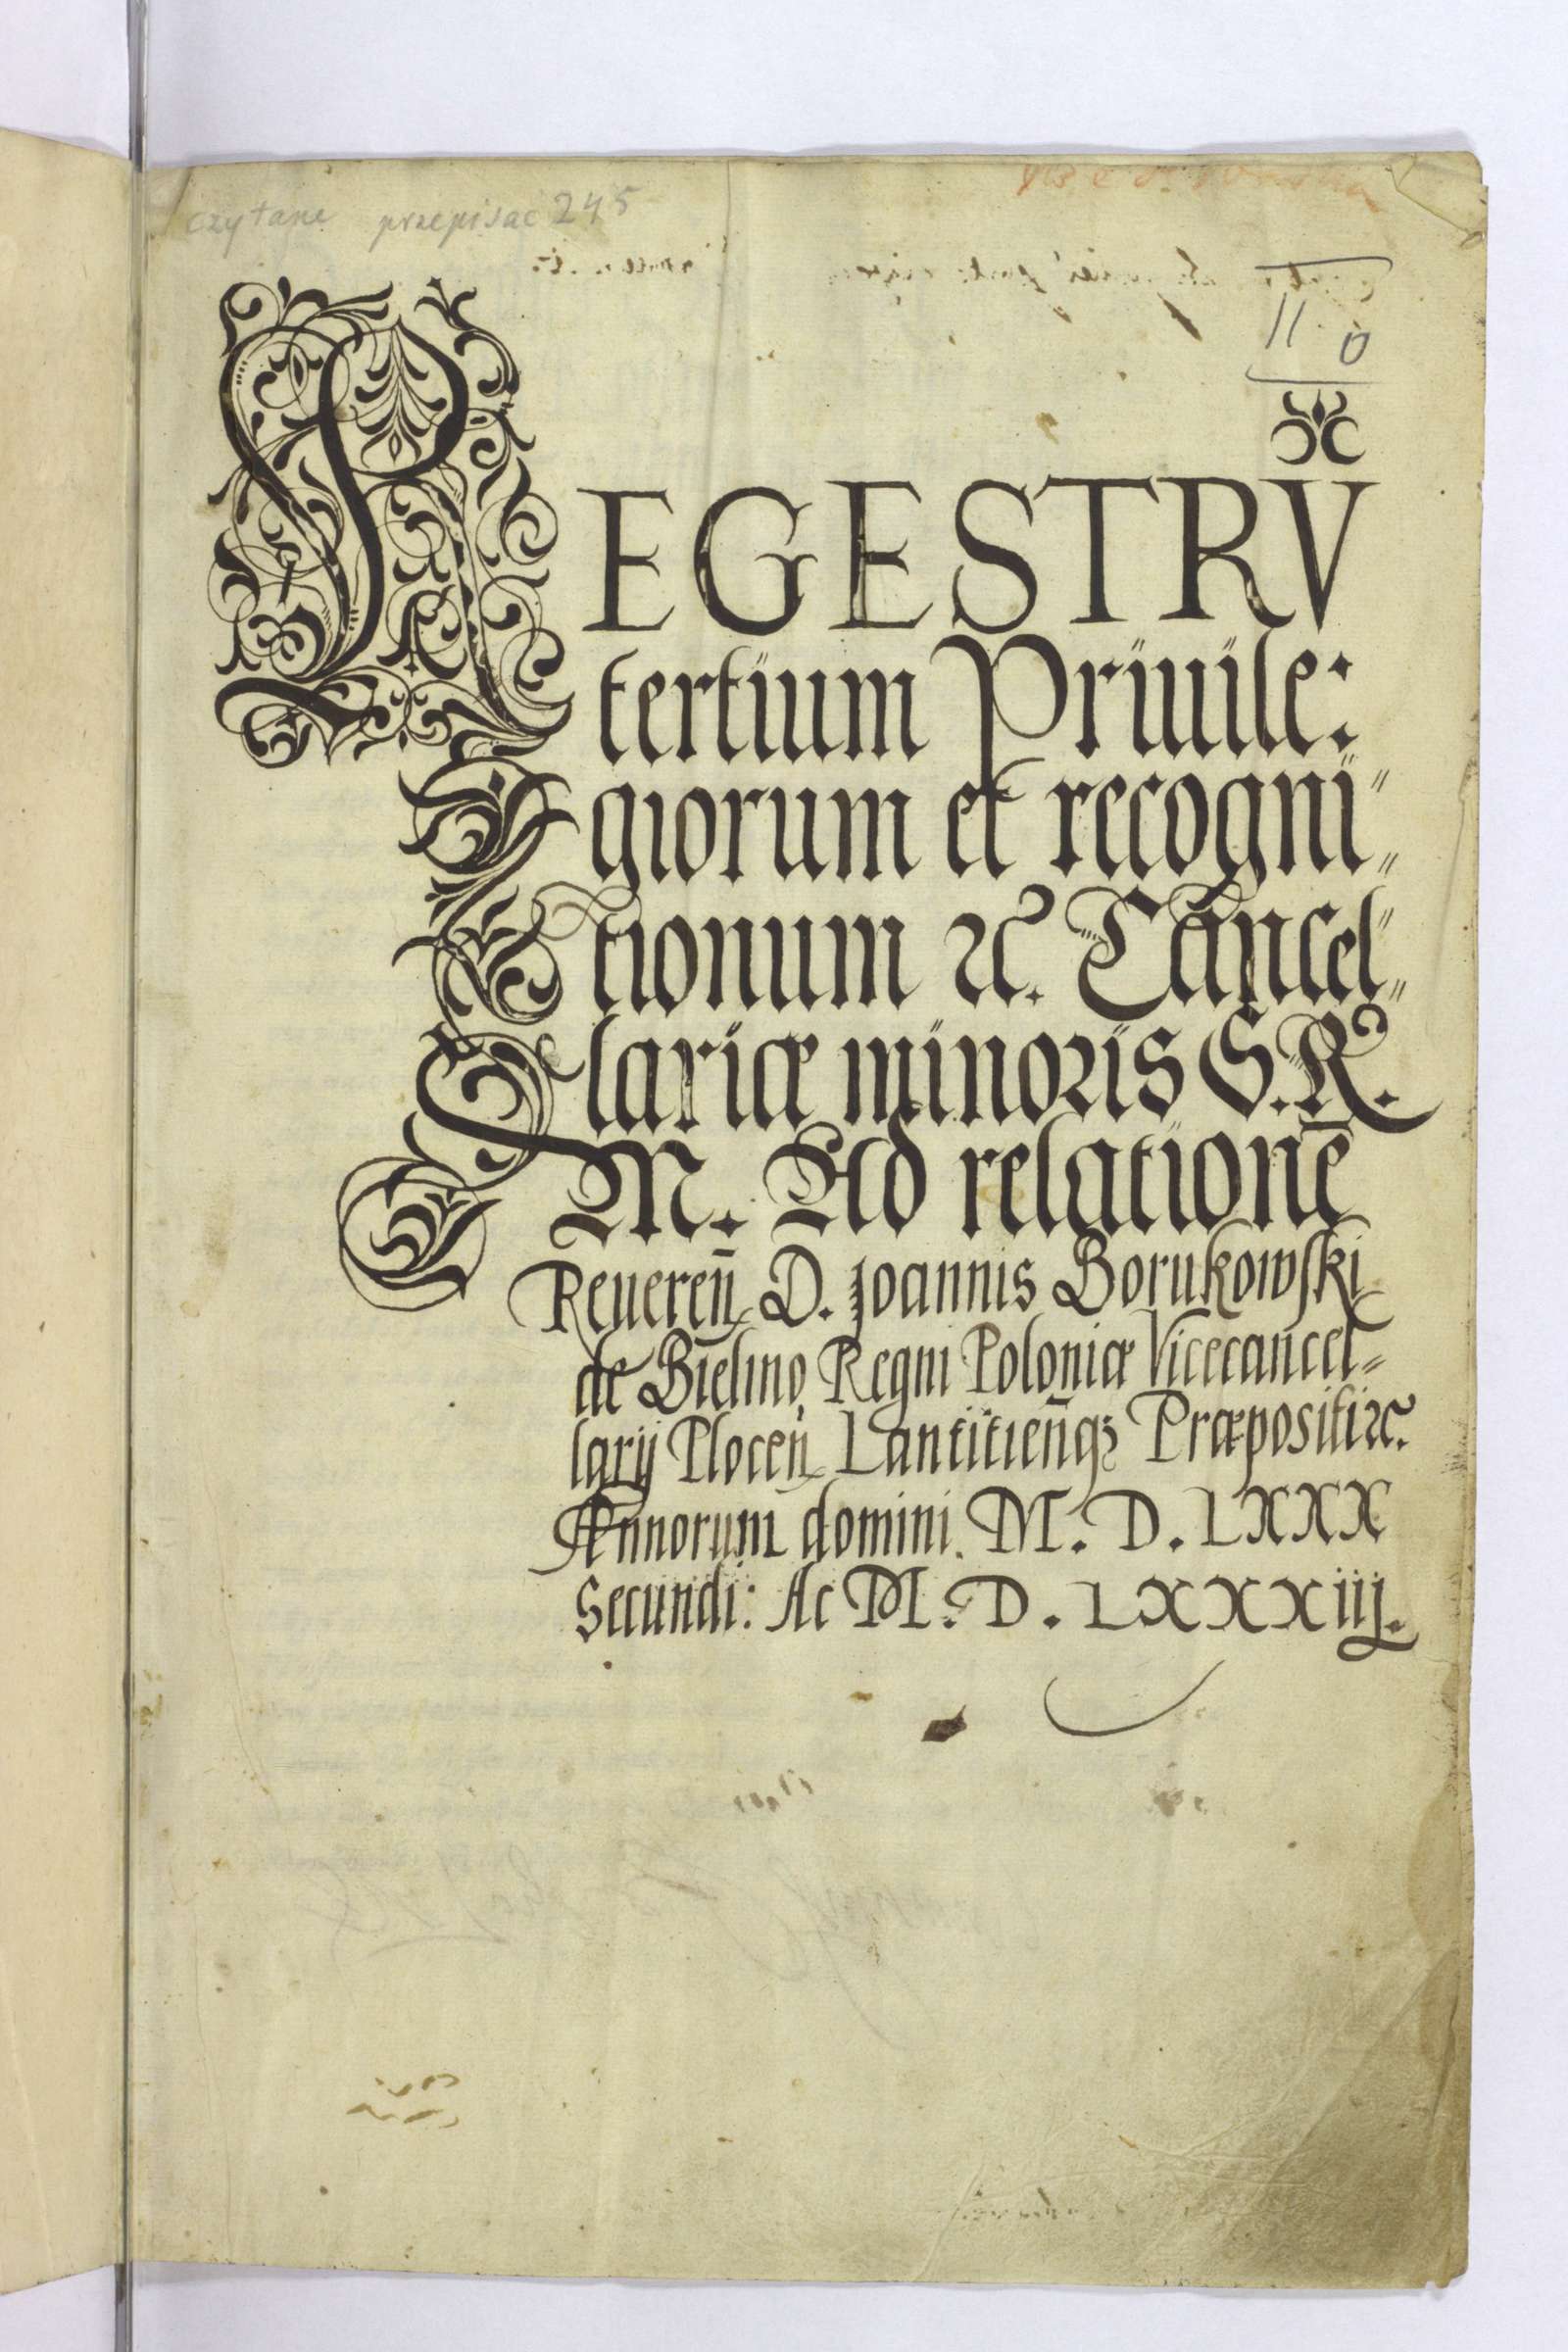 czytane przepisac 245
II 0
REGESTRV̄
tertium Priuile:
giorum et recogni„
tionum ꝛc. Cancel„
lariæ minoris S. R.
M. Ad relationē
Reueren̄ D. Joannis Borukowski
de Bielino, Regni Poloniæ Vicecancel=
larij Plocen̄ Lantitien̄qꝫ Præpositi ꝛc.
Annorum domini. M. D. LXXX
Secundi: Ac M. D. LXXXiij.